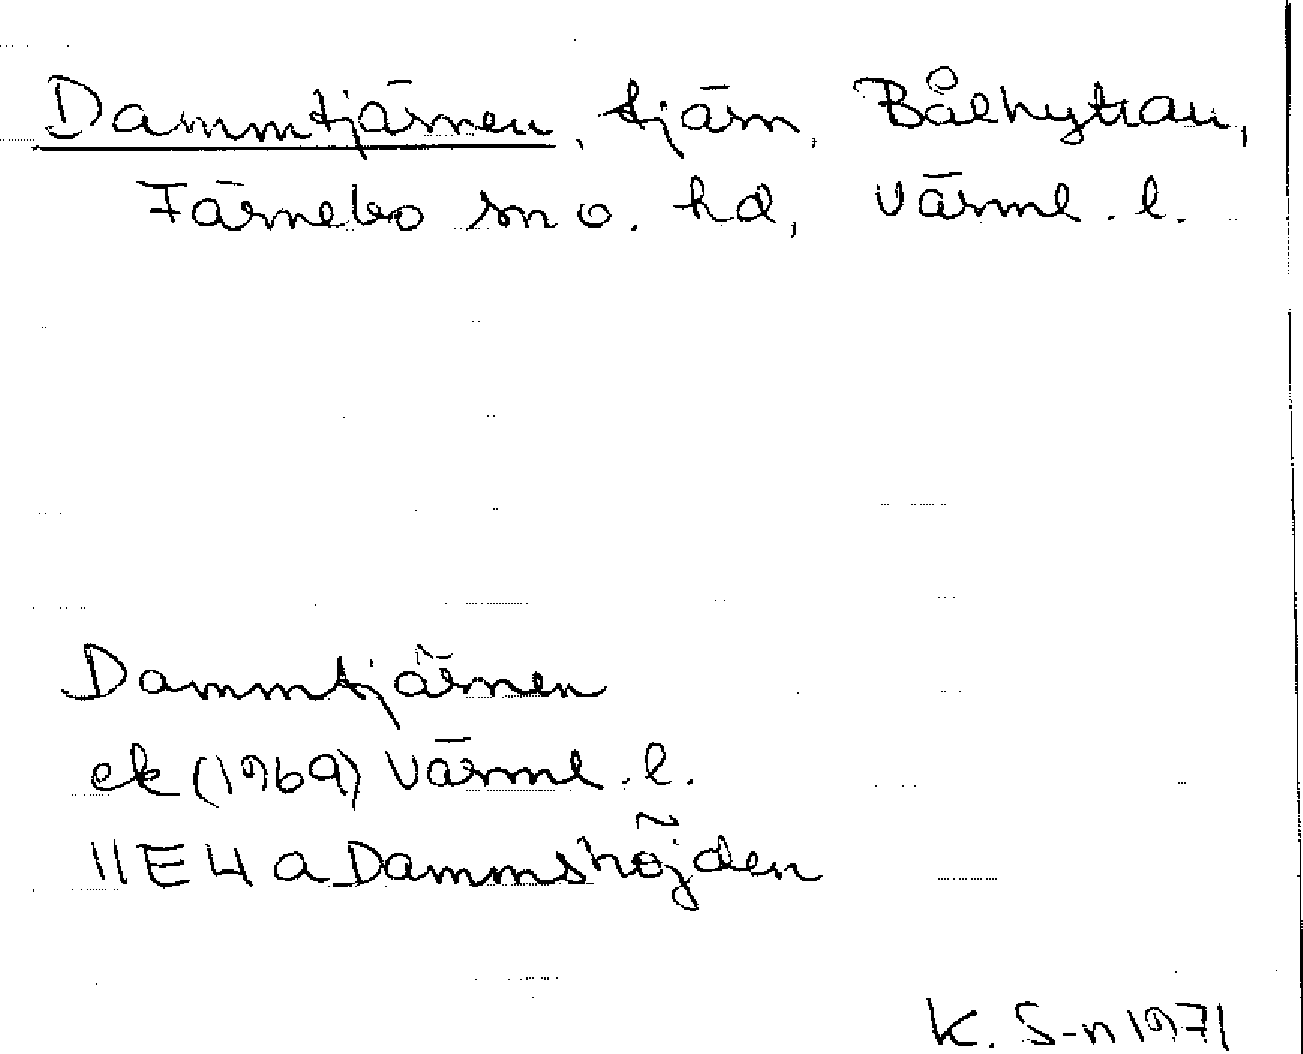 Dammtjärnen, tjärn, Bålhyttan,
Färnebo sn o. hd, Värml. l.
Dammtjärnen
ek (1969) Värml. l.
11E4a Dammshöjden
K. S-n 1971